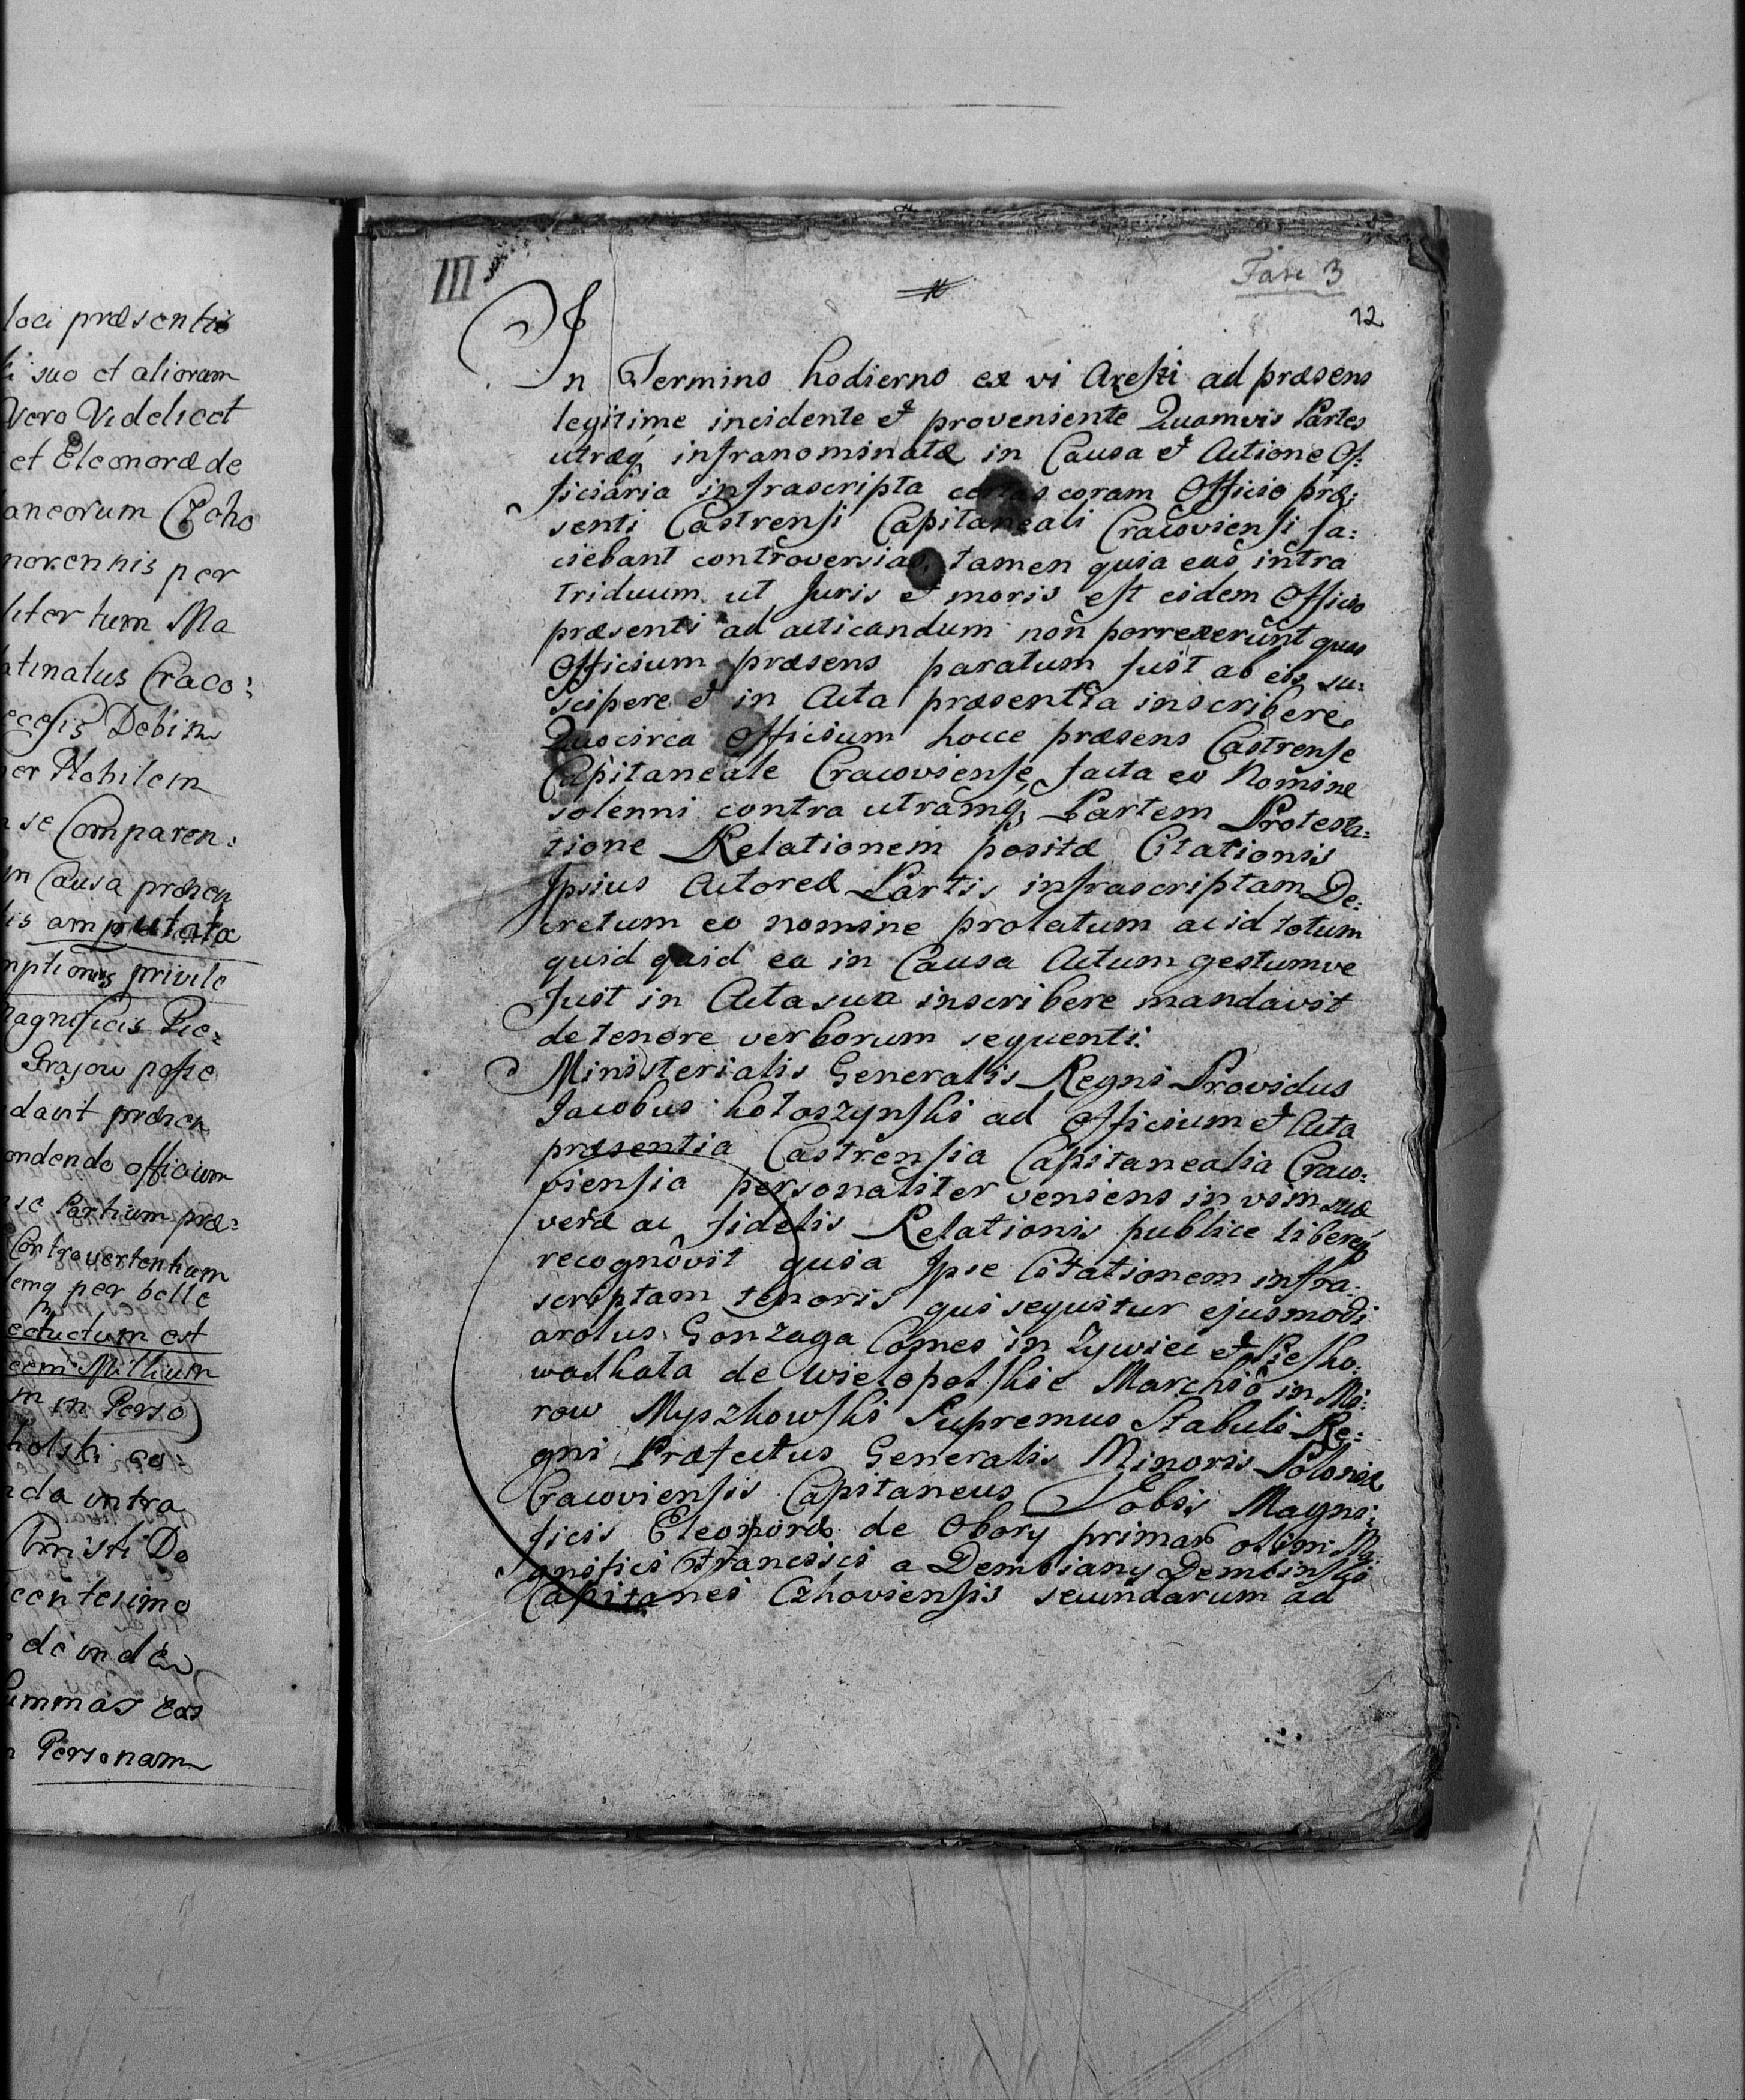 loci præsentis
li suo et aliorum
Vero Videlicet
et Eleonoræ de
aneorum Czcho
norennis per
liter tum Ma
atinatus Craco:
Debin
er Nobilem
se Comparen:
in Causa præsen
is amputata
mptionis privile
magnificis Pie:
Grajow posse
davit præsen
ondendo officium
se Partium præ:
Controvertentium
lemq per belle
eductum est
cem Millium
m in Perso
co:
da intra
Christi Do
centesimo
deinde
summas eas
Personam
III
Fasc 3
12
In Termino hodierno ex vi Aresti ad præsens
legitime incidente et proveniente Quamvis Partes
utræq infranominatæ in Causa et Actione Of:
ficiaria infrascripta certas coram Officio præ:
senti Castrensi Capitaneali Cracoviensi fa:
ciebant controversias, tamen quia eas intra
triduum ut Juris et moris est eidem Officio
præsenti ad acticandum non porrexerunt quas
Officium præsens paratum fuit ab eis su:
scipere et in Acta præsentia inscribere
Quocirca Officium hocce præsens Castrense
Capitaneale Cracoviense, facta eo Nomine
solenni contra utramq Partem Protesta:
tione Relationem positæ Citationis
Ipsius Actoreæ Partis infrascriptam De:
cretum eo nomine prolatum ac id totum
quid quid ea in Causa Actum gestumve
fuit in Acta sua inscribere mandavit
de tenore verborum sequenti.
Ministerialis Generalis Regni Providus
Jacobus hołoszynski ad Officium et Acta
præsentia Castrensia Capitanealia Craco:
viensia personaliter veniens in vim suæ
veræ ac fidelis Relationis publice libereq
recognovit quia Ipse Citationem infra:
scriptam tenoris qui sequitur ejusmodi
Carolus Gonzaga Comes in Zywiec et Piesko:
waskała de Wielopolskie Marchio in Mi:
row Myszkowski Supremus Stabuli Re:
gni Præfectus Generalis Minoris Poloniæ
Cracoviensis Capitaneus Vobis Magni:
ficis Eleonoræ de Obory primar olim Ma:
gnifici Francisci a Dembiany Dembinski
Capitanei Czhoviensis secundarum ad